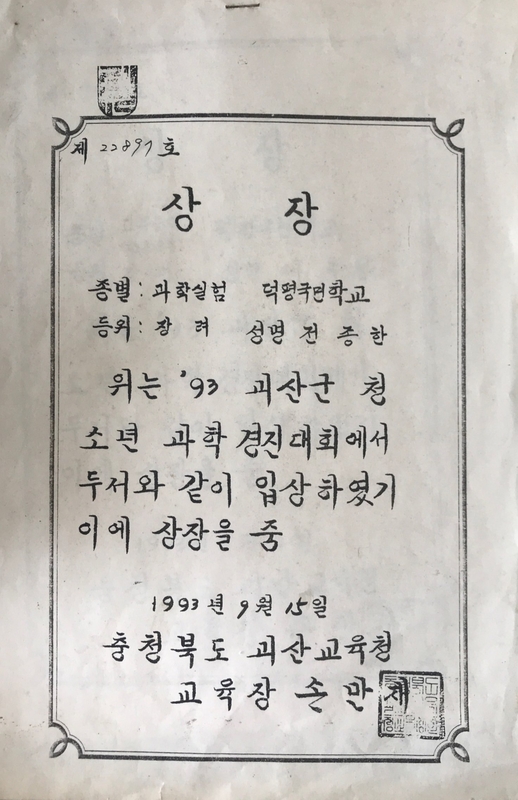 제 22897 호
상 장
종별: 과학실험 덕평국민학교
등위: 장 려 성명 전 종 한
위는 '93 괴산군 청
소년 과학 경진대회에서
두서와 같이 입상하였기
이에 상장을 줌
1993년 9월 15일
충청북도 괴산교육청
교육장 손만제